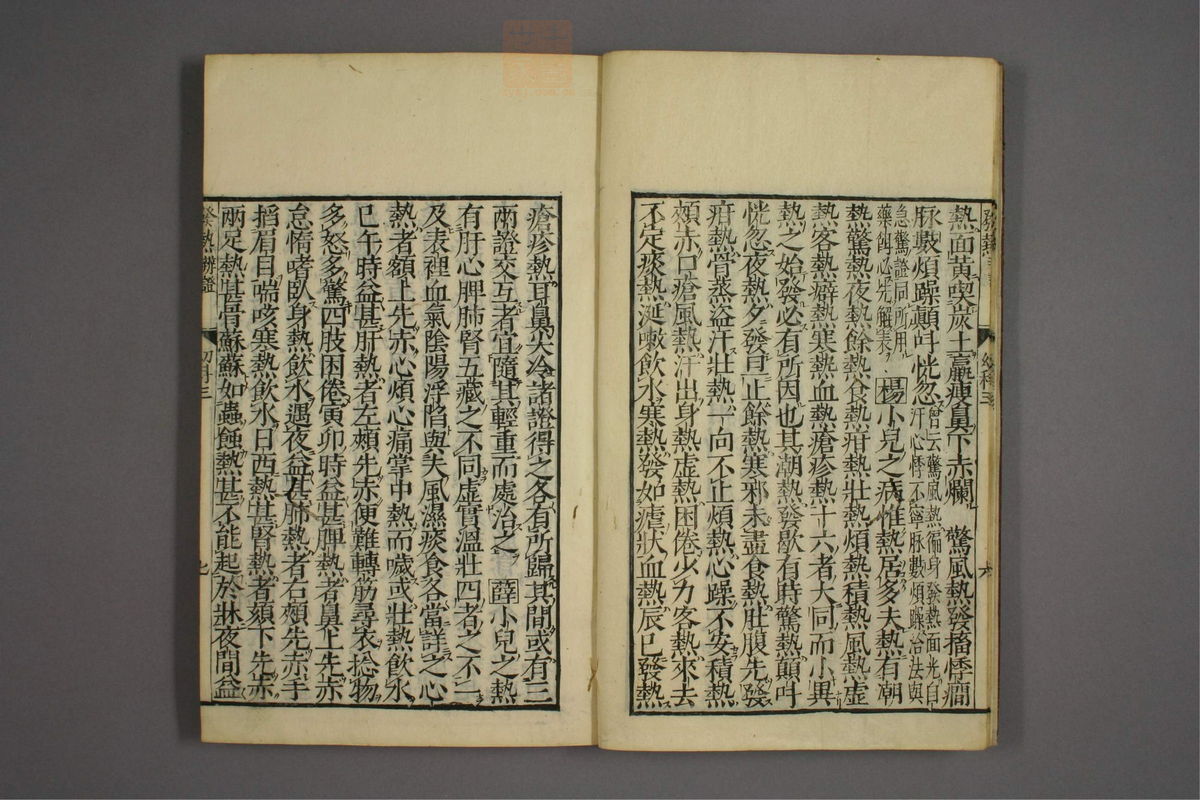 熱面黃喫炭土羸瘦鼻下赤爛　驚風熱發搐悸癇
脉數煩躁顛呌恍忽曾云驚風熱徧身發熱面光自
汗心悸不寧脉數煩躁治法與
急驚證同所用
藥餌必先解表　楊小兒之病惟熱居多夫熱有潮
熱驚熱夜熱餘熱食熱疳熱壯熱煩熱積熱風熱虛
熱客熱癖熱寒熱血熱瘡疹熱十六者大同而小異
熱之始發必有所因也其潮熱發歇有時驚熱顛呌
恍忽夜熱夕發旦止餘熱寒邪未盡食熱肚腹先發
疳熱骨蒸盜汗壯熱一向不止煩熱心躁不安積熱
頰赤口瘡風熱汗出身熱虛熱困倦少力客熱來去
不定痰熱涎嗽飲水寒熱發如瘧狀血熱辰巳發熱
幼科三
六
瘡疹熱耳鼻尖冷諸證得之各有所歸其間或有三
兩證交互者宜隨其輕重而處治之　薛小兒之熱
有肝心脾肺腎五藏之不同虛實溫壯四者之不一
及表裡血氣陰陽浮陷與夫風濕痰食各當詳之心
熱者額上先赤心煩心痛掌中熱而噦或壯熱飲水
巳午時益甚肝熱者左頰先赤便難轉筋尋衣捻物
多怒多驚四肢困倦寅卯時益甚脾熱者鼻上先赤
怠惰嗜臥身熱飲水遇夜益甚肺熱者右頰先赤手
掐眉目喘咳寒熱飲水日西熱甚腎熱者頦下先赤
兩足熱甚骨蘇蘇如蟲蝕熱甚不能起於牀夜間益
發熱辨證
幼科三
七